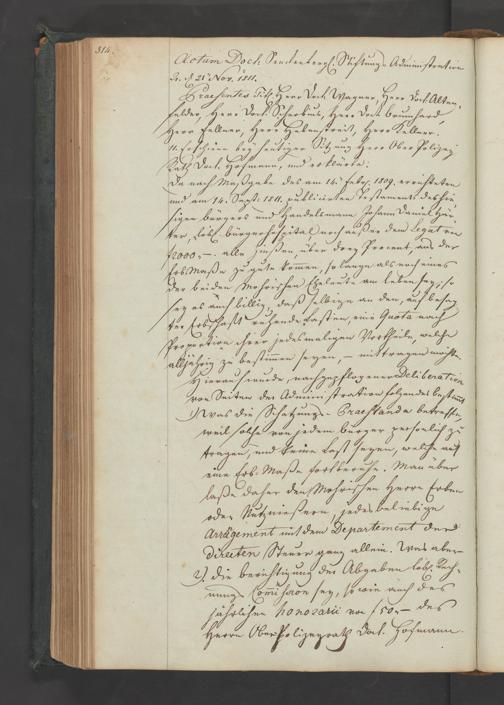 314.
Actum Doct. Senckenbergl. Stiftungs Administration
d. 21 Nov. 1811.
Praesentes Tit. Herr Doct. Wagner, Herr Doct. Alten,
felder, Herr Doct. Scherbius, Herr Doct.
Herr Fellner, Herr Herr Kellner.
11. Erschien bey heutiger Sitzung Herr Ober Polizey
Rath Doct. Hofmann, und erklärte:
Da nach Maßgabe des am 14. Feby. 1809. errichteten
und am 14. Sept. 1811. publicirten Testaments des hie,
sigen Bürgers und Handelsmann Johann Daniel
löbl. Bürgerhospital noch außer dem Legat von
f2000,–. alle über drey Procent, aus der
Erb. Maße zu gute kommen, so lange als noch eines
der beiden Mohrischen Eheleute am Leben sey, so
sey es auch billig, daß selbige an den, auf besag,
ter Erbschaft ruhende Lasten, eine Quota nach
Proportion ihrer jedesmaligen Vortheile, welche
alljährig zu bestimmen seyen, – mittragen möchte.
Hierauf wurde, nach gepflogener Deliberation
von Seiten der Administration folgendes bestimt
1) Was die Schatzungs- Praestanda betreffe,
weil solche von jedem Bürger persönlich zu
tragen, und keine Last seyen, welche auf
eine Erb. Maße fortberuhe. Man über
laße daher den Mohrischen Herrn Erben
oder Nutznießern, jedes beliebige
Arrangement mit dem Departement der
directen Steuer ganz allein. Was aber
2) die berichtigung der Abgaben löbl. Rech,
nungs Commission sey, so wie auch des
jährlichen honorarii von f50,– des
Herrn Ober Polizeyrath Doct. Hofmann.